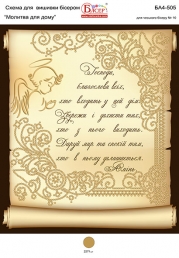 Схема для вишивки бісером
"Молитва для дому"
БА4-505
для пошиття бісеру № 10
Господи,
благослови всіх,
хто входить у цей дім.
Збережи і захисти тих,
хто з нього виходить.
Даруй мир та спокій тим,
хто в ньому залишається.
Амінь.